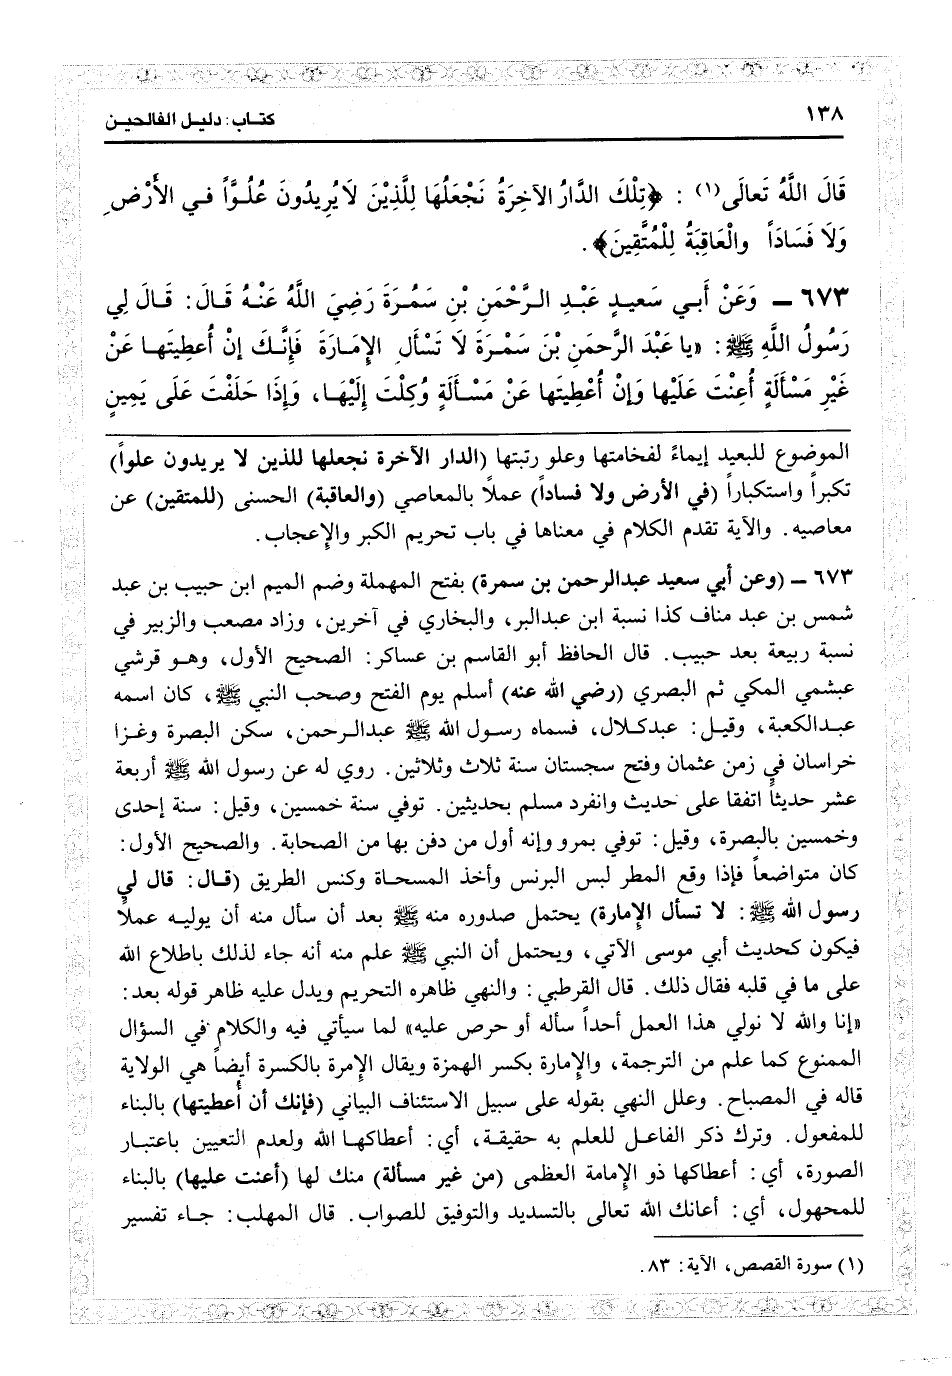 ١٣٨
كتاب: دليل الفالحين
قَالَ اللَّهُ تَعالَى(١) : ﴿تِلْكَ الدَّارُ الآخِرَةُ نَجْعَلُهَا لِلَّذِيْنَ لَا يُرِيدُونَ عُلُوَّاً فـي الأَرْضِ
وَلَا فَسَادَاً والْعَاقِبَةُ لِلْمُتَّقِينَ﴾.
٦٧٣ ــ وَعَنْ أَبـي سَعيـدٍ عَبْدِ الـرَّحْمَنِ بْنِ سَمُـرَةَ رَضِيَ اللَّهُ عَنْـهُ قَالَ: قَـالَ لِي
رَسُولُ اللَّهِ ﷺ: «يا عَبْدَ الرَّحمَنِ بْنَ سَمْـرَةَ لَا تَسْأَلِ الإِمَـارَةَ فَإِنَّـكَ إنْ أُعطِيتَهـا عَنْ
غَيْرِ مَسْأَلَةٍ أُعِنْتَ عَلَيْها وَإِنْ أُعْطِيتَها عَنْ مَسْـأَلَةٍ وُكِلْتَ إِلَيْهَـا، وَإِذَا حَلَفْتَ عَلَى يَمِينٍ
الموضوع للبعيد إيماءً لفخامتها وعلو رتبتها (الدار الآخرة نجعلها للذين لا يريدون علواً)
تكبراً واستكباراً (في الأرض ولا فساداً) عملاً بالمعاصي (والعاقبة) الحسنى (للمتقين) عن
معاصيه. والآية تقدم الكلام في معناها في باب تحريم الكبر والإعجاب.
٦٧٣ ــ (وعن أبي سعيد عبدالرحمن بن سمرة) بفتح المهملة وضم الميم ابن حبيب بن عبد
شمس بن عبد مناف كذا نسبة ابن عبدالبر، والبخاري في آخرين، وزاد مصعب والزبير في
نسبة ربيعة بعد حبيب. قال الحافظ أبو القاسم بن عساكر: الصحيح الأول، وهـو قرشي
عبشمي المكي ثم البصري (رضي الله عنه) أسلم يوم الفتح وصحب النبي ﷺ، كان اسمه
عبـدالكعبة، وقيـل: عبدكـلال، فسماه رسـول الله ﷺ عبدالـرحمن، سكن البصرة وغـزا
خراسان في زمن عثمان وفتح سجستان سنة ثلاث وثلاثين. روي له عن رسول الله ﷺ أربعة
عشر حديثاً اتفقا على حديث وانفرد مسلم بحديثين. توفي سنة خمسين، وقيل: سنة إحدى
وخمسين بالبصرة، وقيل: توفي بمرو وإنه أول من دفن بها من الصحابة. والصحيح الأول:
كان متواضعاً فإذا وقع المطر لبس البرنس وأخذ المسحاة وكنس الطريق (قـال: قال لي
رسول الله ﷺ: لا تسأل الإمارة) يحتمل صدوره منه ﷺ بعد أن سأل منه أن يوليـه عملاً
فيكون كحديث أبي موسى الآتي، ويحتمل أن النبي ﷺ علم منه أنه جاء لذلك باطلاع الله
على ما في قلبه فقال ذلك. قال القرطبي: والنهي ظاهره التحريم ويدل عليه ظاهر قوله بعد:
«إنا والله لا نولي هذا العمل أحداً سأله أو حرص عليه» لما سيأتي فيه والكلام في السؤال
الممنوع كما علم من الترجمة، والإمارة بكسر الهمزة ويقال الإمرة بالكسرة أيضاً هي الولاية
قاله في المصباح. وعلل النهي بقوله على سبيل الاستئناف البياني (فإنك أن أُعطيتها) بالبناء
للمفعول. وترك ذكر الفاعـل للعلم به حقيقـة، أي: أعطاكهـا الله ولعدم التعيين باعتبـار
الصورة، أي: أعطاكها ذو الإمامة العظمى (من غير مسألة) منك لها (أعنت عليها) بالبناء
للمجهول، أي: أعانك الله تعالى بالتسديد والتوفيق للصواب. قال المهلب: جـاء تفسير
(١) سورة القصص، الآية: ٨٣.